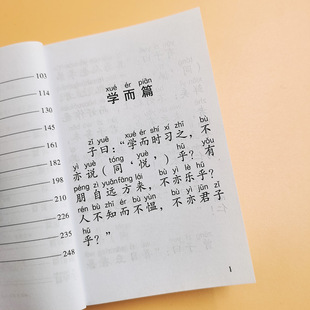 103
131
145
161
182
197
210
226
235
248
xué ér piān
学而篇
zǐ yuē xué ér shí xí zhī bù
子曰:“学而时习之,不
yì yuè tóng yuè hū yǒu
亦说(同‘悦’)乎?有
péng zì yuǎn fāng lái bù yì lè hū
朋自远方来,不亦乐乎?
rén bù zhī ér bù yùn bù yì jūn zǐ
人不知而不愠,不亦君子
hū
乎?”
1